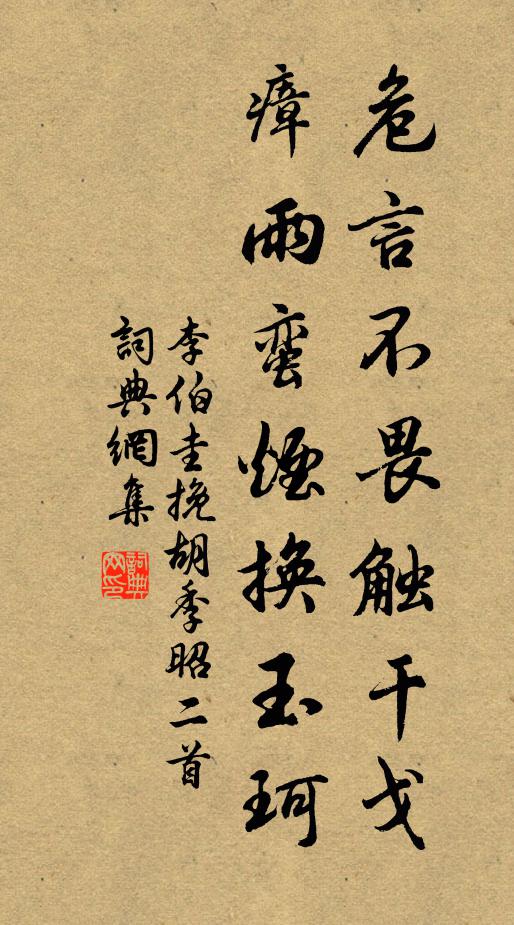 危言不畏触干戈
瘴雨蛮烟换玉珂
李伯圭挽胡季昭二首
詞典網集
詞典网印